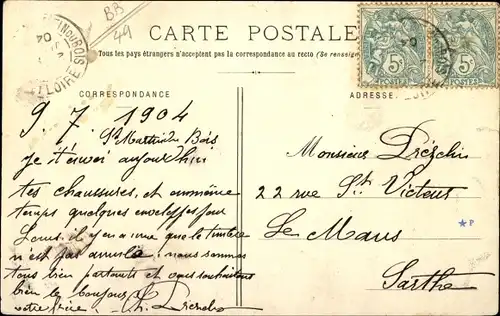 BB
49
CARTE POSTALE
Tous les pays étrangers n'acceptent pas la correspondance au recto (Se renseign
CORRESPONDANCE
ADRESSE
04
LOIRE
5c
POSTES
5c
POSTES
9. 7. 1904
St Martin du Bois
Je t'envoi aujourd'hui
tes chaussures, et en même
temps quelques enveloppes pour
Louis, il y en a une que le timbre
n'est pas annulé, nous sommes
tous bien portants et vous souhaitons
bien le bonjour
votre frère
Monsieur
22 rue St. Victeur
Le Mans
Sarthe
P